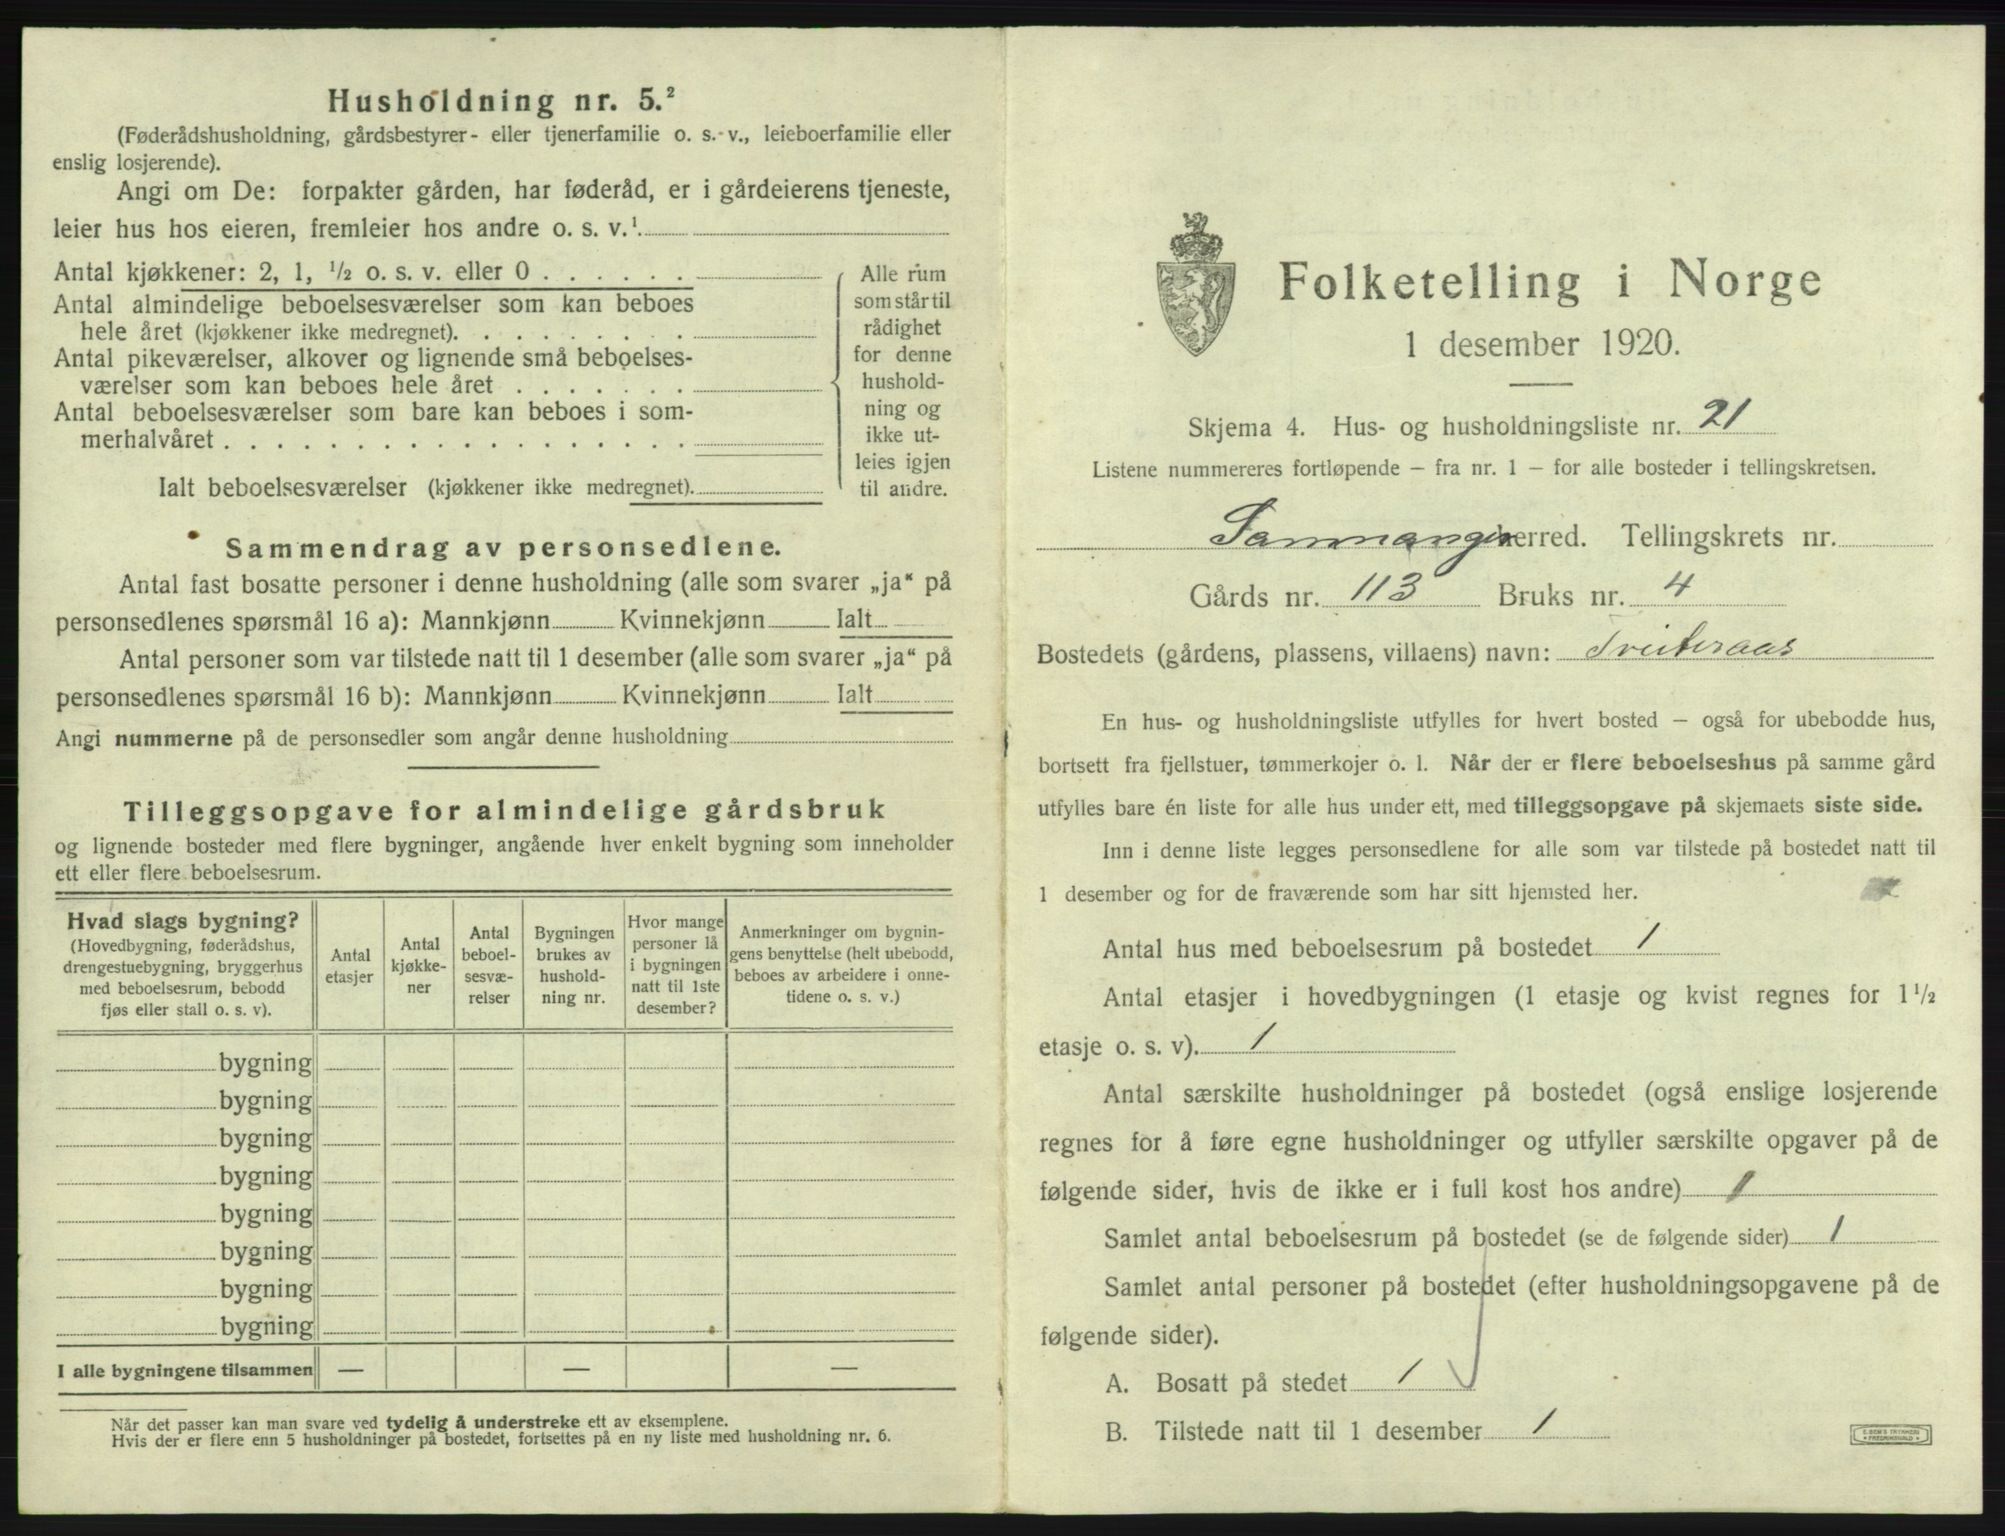 Husholdning nr. 5.²
(Føderådshusholdning, gårdsbestyrer- eller tjenerfamilie o. s. v., leieboerfamilie eller
enslig losjerende).
Angi om De: forpakter gården, har føderåd, er i gårdeierens tjeneste,
leier hus hos eieren, fremleier hos andre o. s. v.¹
Antal kjøkkener: 2, 1, ½ o. s. v. eller 0 . . . . . .
Antal almindelige beboelsesværelser som kan beboes
hele året (kjøkkener ikke medregnet). . . . . . . . .
Antal pikeværelser, alkover og lignende små beboelses-
værelser som kan beboes hele året . . . . . . .
Antal beboelsesværelser som bare kan beboes i som-
merhalvåret . . . . . . . . . . . . . . . . . .
Ialt beboelsesværelser (kjøkkener ikke medregnet).
Alle rum
som står til
rådighet
for denne
hushold-
ning og
ikke ut-
leies igjen
til andre.
Sammendrag av personsedlene.
Antal fast bosatte personer i denne husholdning (alle som svarer „ja“ på
personsedlenes spørsmål 16 a): Mannkjønn Kvinnekjønn Ialt
Antal personer som var tilstede natt til 1 desember (alle som svarer „ja“ på
personsedlenes spørsmål 16 b): Mannkjønn Kvinnekjønn Ialt
Angi nummerne på de personsedler som angår denne husholdning
Tilleggsopgave for almindelige gårdsbruk
og lignende bosteder med flere bygninger, angående hver enkelt bygning som inneholder
ett eller flere beboelsesrum.
Hvad slags bygning?
(Hovedbygning, føderådshus,
drengestuebygning, bryggerhus
med beboelsesrum, bebodd
fjøs eller stall o. s. v).
Antal
etasjer
Antal
kjøkke-
ner
Antal
beboel-
sesvæ-
relser
Bygningen
brukes av
hushold-
ning nr.
Hvor mange
personer lå
i bygningen
natt til 1ste
desember?
Anmerkninger om bygnin-
gens benyttelse (helt ubebodd,
beboes av arbeidere i onne-
tidene o. s. v.)
bygning
bygning
bygning
bygning
bygning
bygning
bygning
bygning
I alle bygningene tilsammen — — —
Når det passer kan man svare ved tydelig å understreke ett av eksemplene.
Hvis der er flere enn 5 husholdninger på bostedet, fortsettes på en ny liste med husholdning nr. 6.
Folketelling i Norge
1 desember 1920.
Skjema 4. Hus- og husholdningsliste nr. 21
Listene nummereres fortløpende – fra nr. 1 – for alle bosteder i tellingskretsen.
Samnanger herred. Tellingskrets nr.
Gårds nr. 113 Bruks nr. 4
Bostedets (gårdens, plassens, villaens) navn: Tveiteraas
En hus- og husholdningsliste utfylles for hvert bosted – også for ubebodde hus,
bortsett fra fjellstuer, tømmerkojer o. l. Når der er flere beboelseshus på samme gård
utfylles bare én liste for alle hus under ett, med tilleggsopgave på skjemaets siste side.
Inn i denne liste legges personsedlene for alle som var tilstede på bostedet natt til
1 desember og for de fraværende som har sitt hjemsted her.
Antal hus med beboelsesrum på bostedet 1
Antal etasjer i hovedbygningen (1 etasje og kvist regnes for 1½
etasje o. s. v). 1
Antal særskilte husholdninger på bostedet (også enslige losjerende
regnes for å føre egne husholdninger og utfyller særskilte opgaver på de
følgende sider, hvis de ikke er i full kost hos andre) 1
Samlet antal beboelsesrum på bostedet (se de følgende sider) 1
Samlet antal personer på bostedet (efter husholdningsopgavene på de
følgende sider).
A. Bosatt på stedet 1
B. Tilstede natt til 1 desember 1